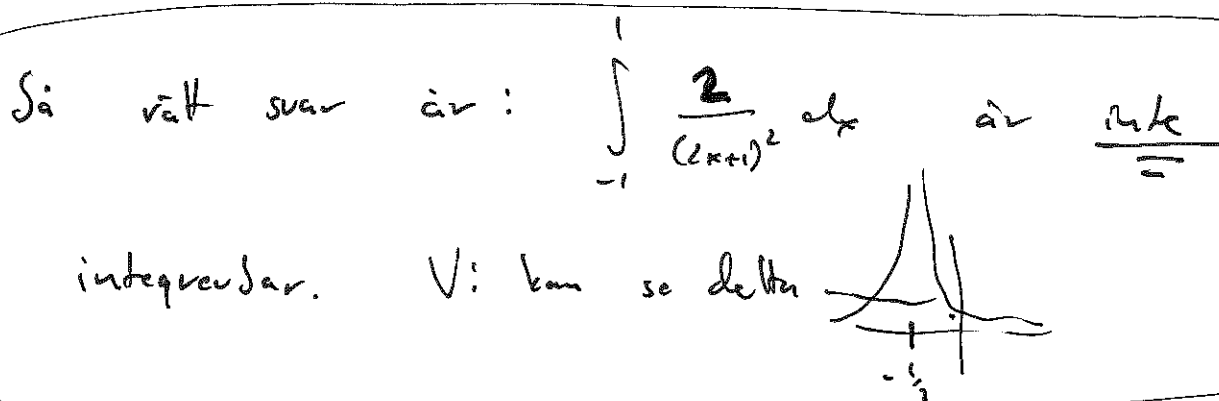 Så rätt svar är: ∫_{-1}^{1} 2/(2x+1)² dx är inte
integrerbar. Vi kan se detta
-1/2